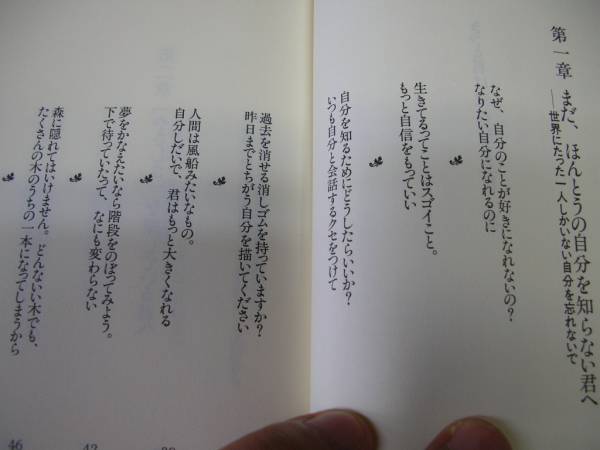 第一章 まだ、ほんとうの自分を知らない君へ
――世界にたった一人しかいない自分を忘れないで
なぜ、自分のことが好きになれないの?
なりたい自分になれるのに
生きてるってことはスゴイこと。
もっと自信をもっていい
自分を知るためにどうしたらいいか?
いつも自分と会話するクセをつけて
過去を消せる消しゴムを持っていますか?
昨日までとちがう自分を描いてください
人間は風船みたいなもの。
自分しだいで、君はもっと大きくなれる
夢をかなえたいなら階段をのぼってみよう。
下で待っていたって、なにも変わらない
森に隠れてはいけません。どんないい木でも、
たくさんの木のうちの一本になってしまうから
46